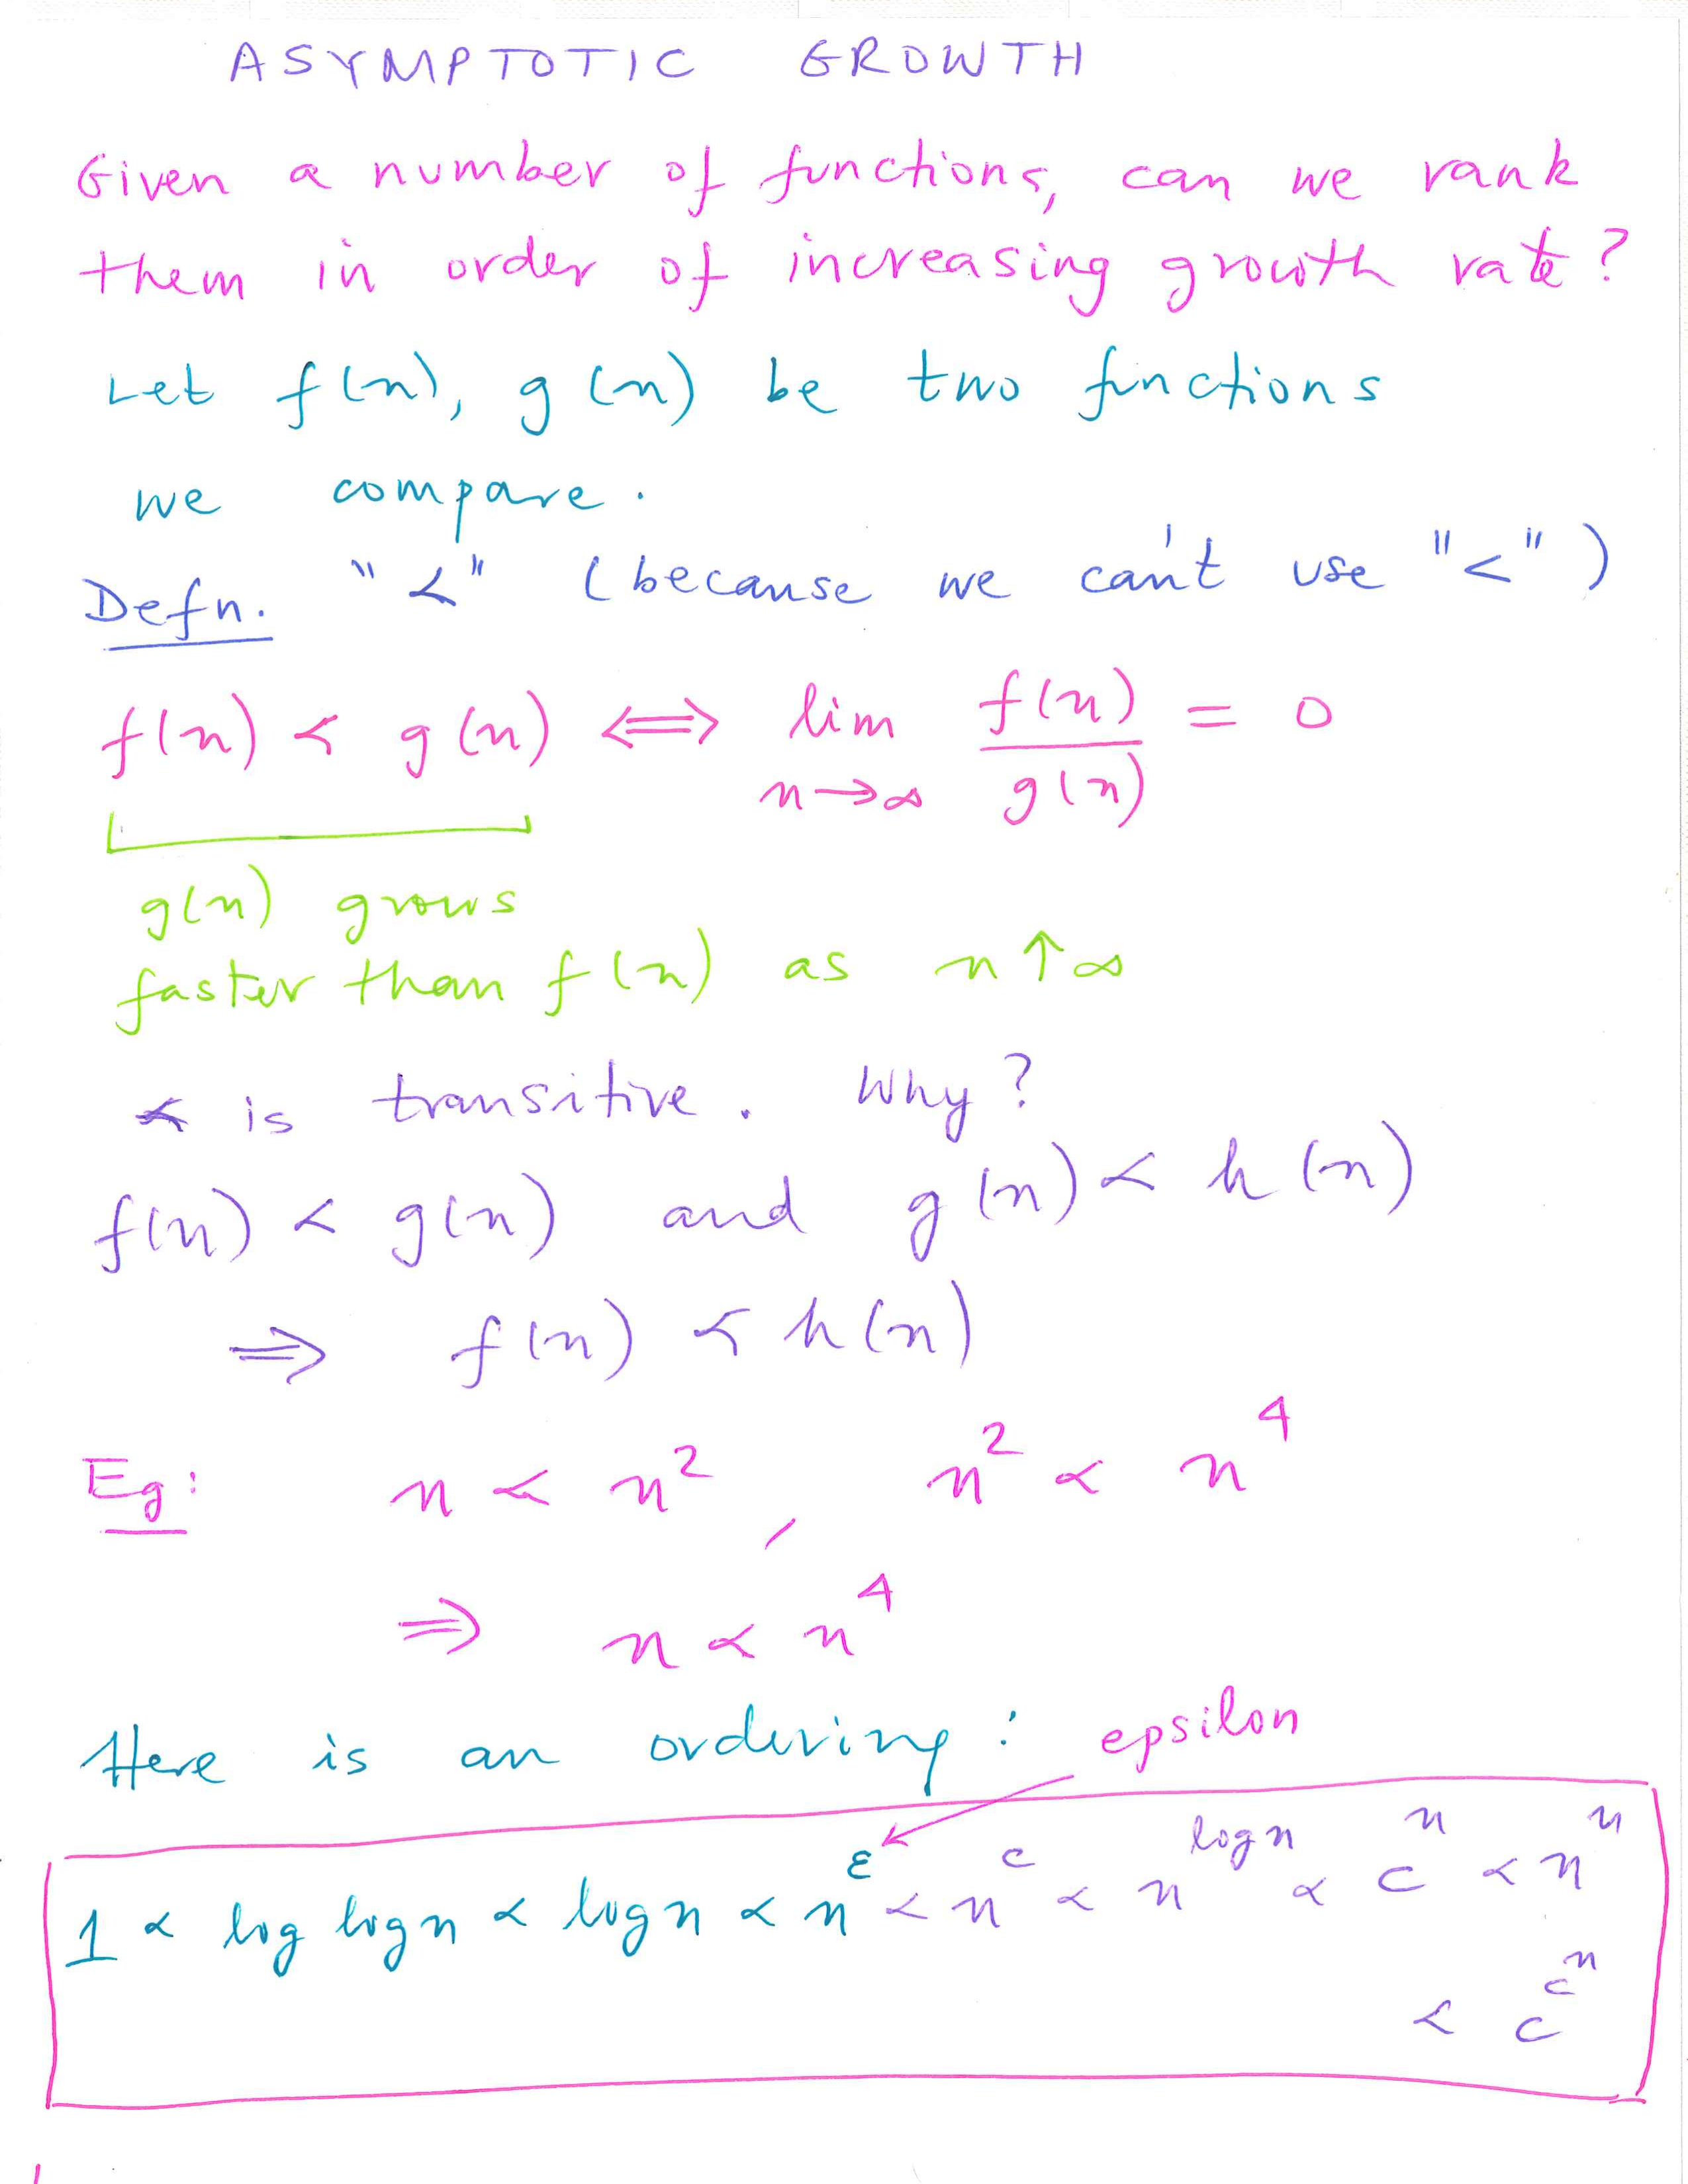 ASYMPTOTIC GROWTH
Given a number of functions, can we rank
them in order of increasing growth rate?
Let f(n), g(n) be two functions
we compare.
Defn. "≺" (because we can't use "<")
f(n) ≺ g(n) ⟺ lim n→∞ f(n)/g(n) = 0
g(n) grows
faster than f(n) as n↑∞
≺ is transitive. Why?
f(n) ≺ g(n) and g(n) ≺ h(n)
⇒ f(n) ≺ h(n)
Eg: n ≺ n², n² ≺ n⁴
⇒ n ≺ n⁴
Here is an ordering: epsilon
1 ≺ log log n ≺ log n ≺ n^ε ≺ n^c ≺ n^(log n) ≺ c^n ≺ n^n
≺ c^(c^n)